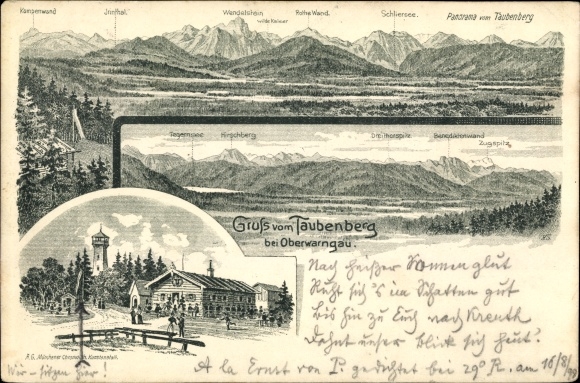 Kampenwand Innthal. Wendelstein Rothe Wand. Schliersee. Panorama vom Taubenberg
Wilde Kaiser
Tegernsee Hirschberg Dreithorspitz Benedictenwand
Zugspitz
Gruß vom Taubenberg
bei Oberwarngau.
Nach heißer Sonnenglut
Ruht sich's im Schatten gut
Bis hin zu Euch nach Kreuth
Dehnt unser Blick sich heut'.
A la Ernst von P. gedichtet bei 29° R. am 16/8 99
A.G. Münchner Chromolith. Kunstanstalt.
Wir sitzen hier!